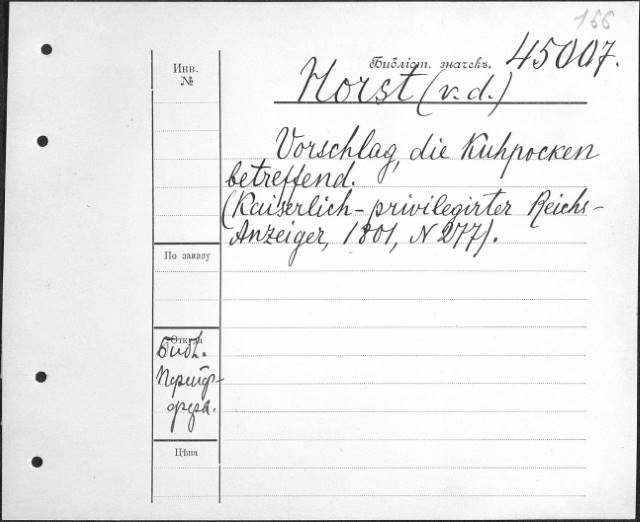 156
Библіот. значекъ. 45007.
Инв.
№
Horst (v. d.)
Vorschlag, die Kuhpocken
betreffend.
(Kaiserlich-privilegirter Reichs-
Anzeiger, 1801, N 277).
По заказу
Откуда
Библ.
Цѣна